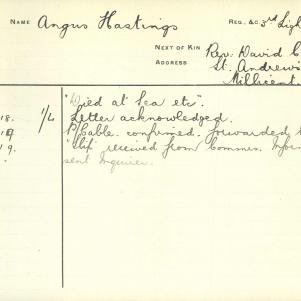 NAME Angus Hastings REG., &C. 3rd Ligh
NEXT OF KIN Rev. David C
ADDRESS St. Andrews
Millicent
"Died at Sea etc".
18. 1/4 Letter acknowledged.
19 Cable confirmed. forwarded
19. "Slip" received from Commes.
sent Inquirer.